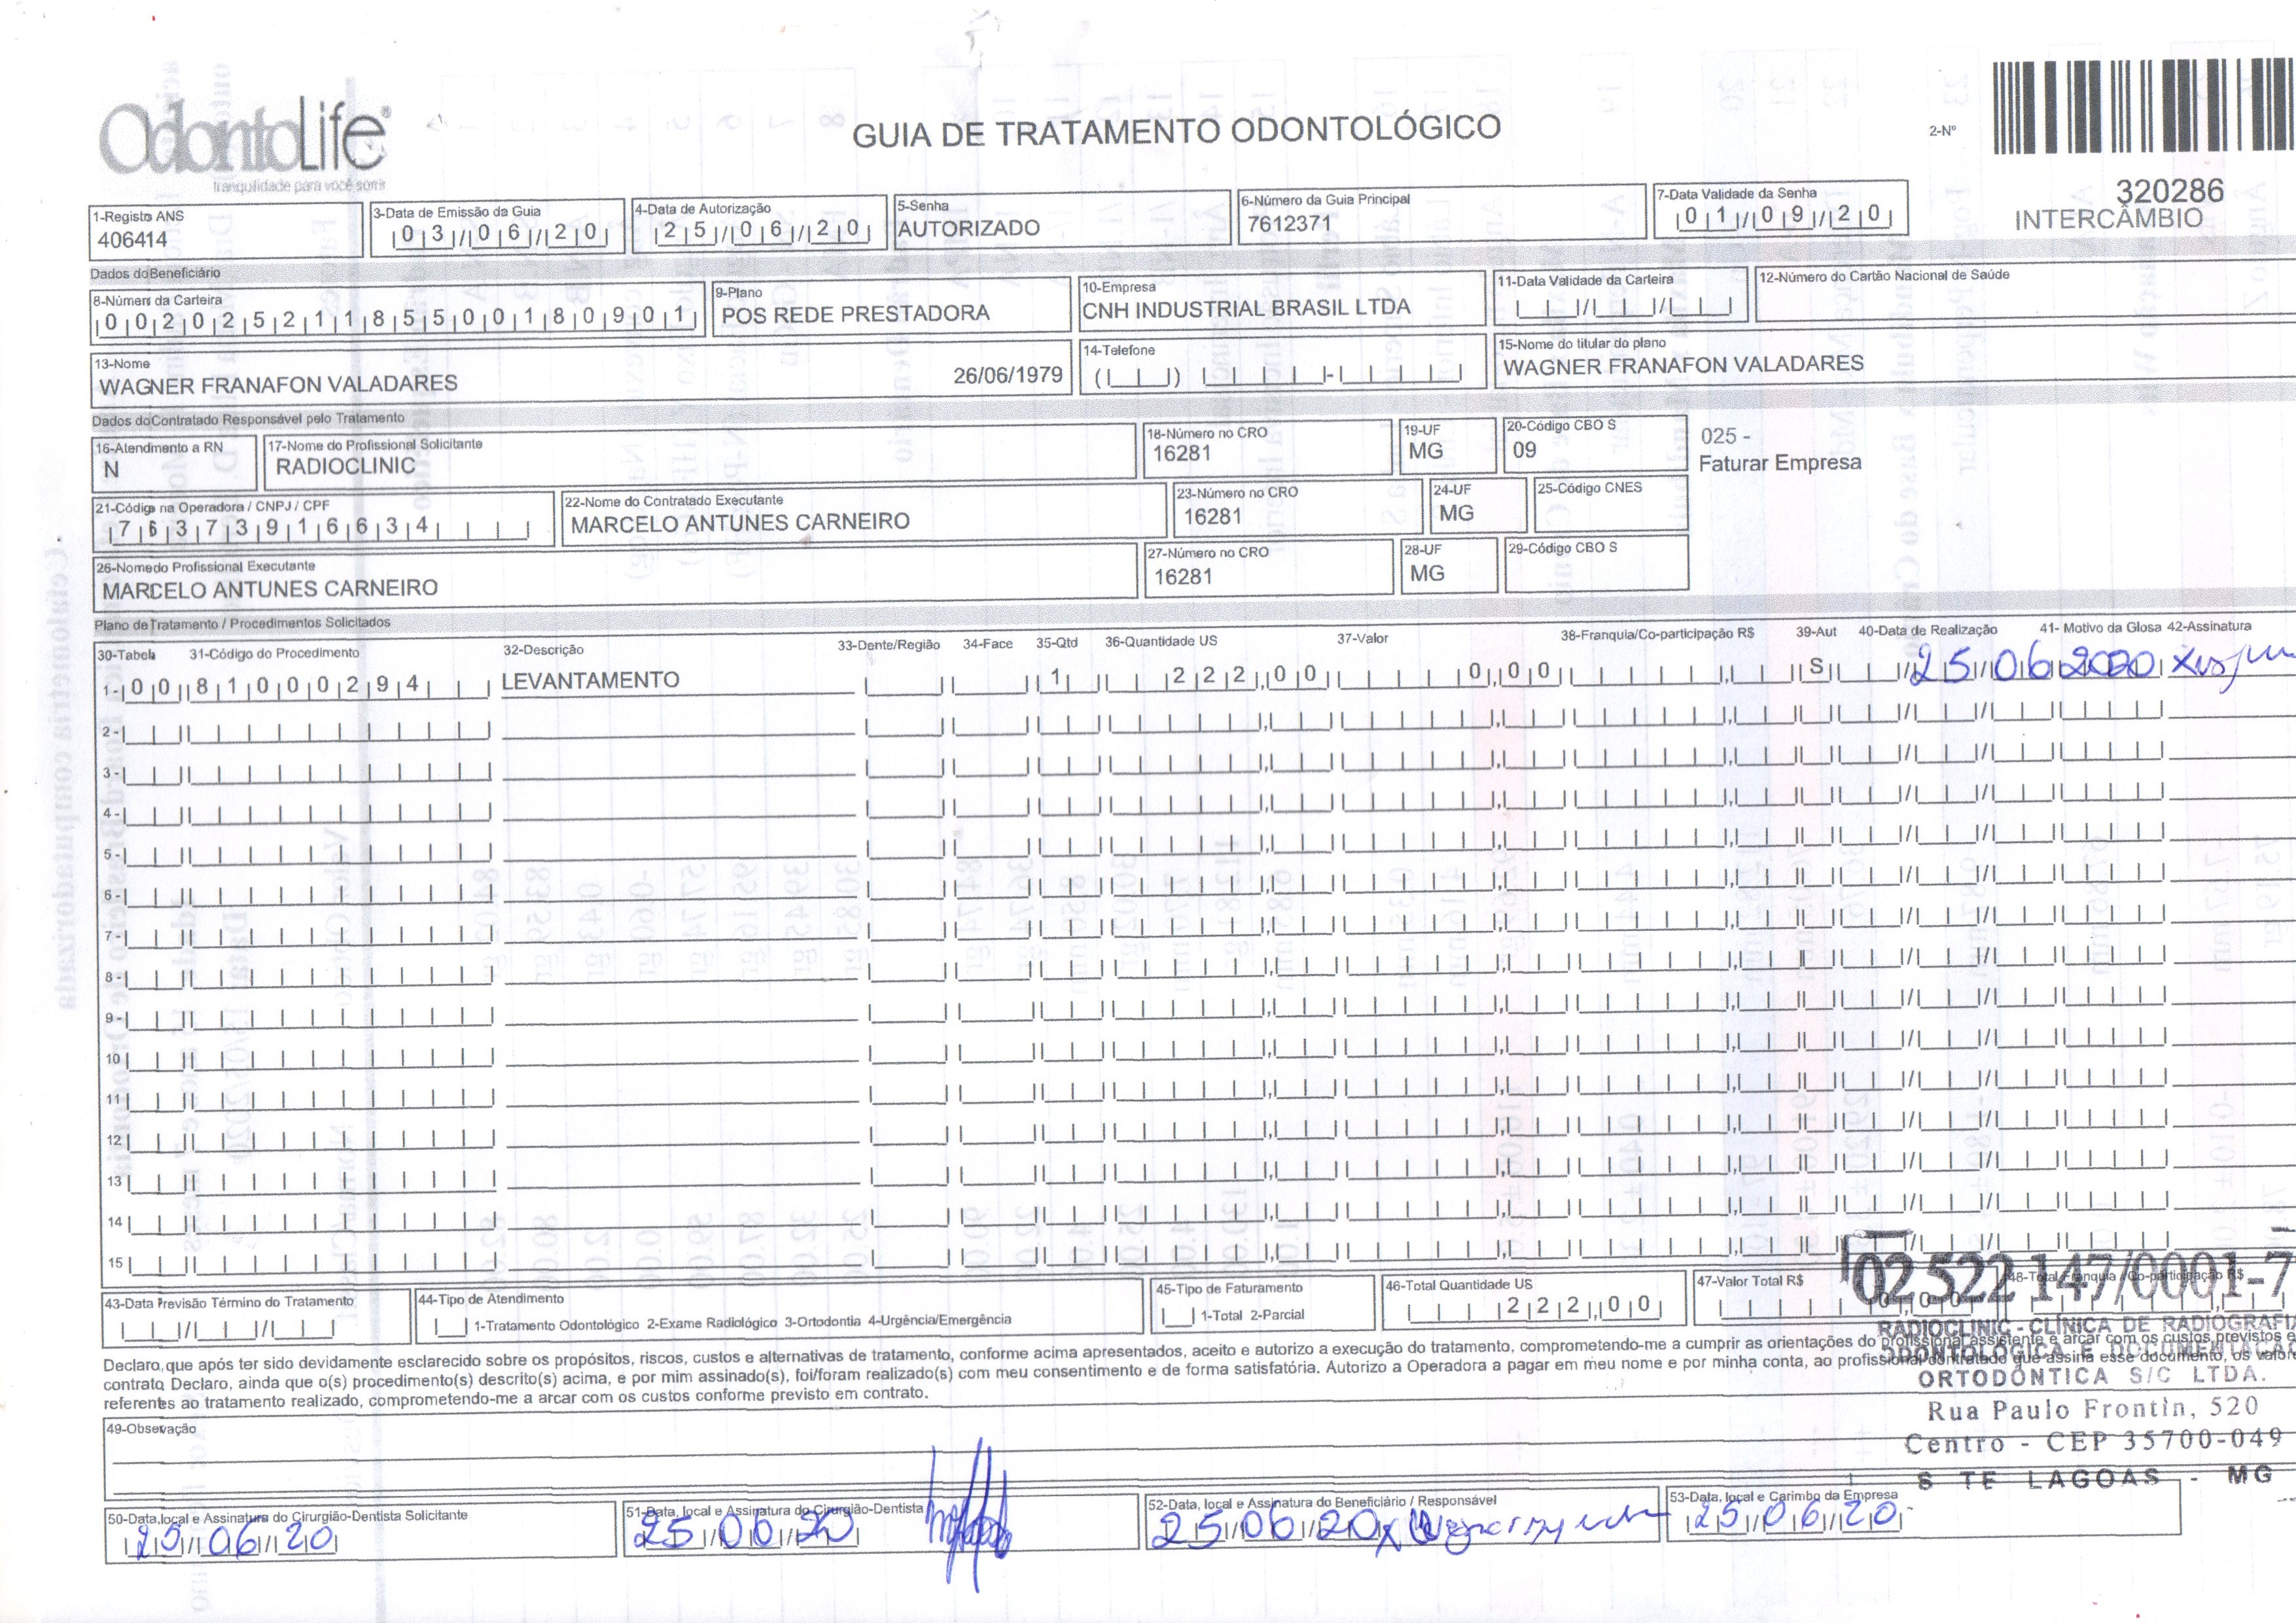 OdontoLife
tranquilidade para você sorrir
GUIA DE TRATAMENTO ODONTOLÓGICO
2-Nº
320286
INTERCÂMBIO
1-Registo ANS
406414
3-Data de Emissão da Guia
03/06/20
4-Data de Autorização
25/06/20
5-Senha
AUTORIZADO
6-Número da Guia Principal
7612371
7-Data Validade da Senha
01/09/20
Dados do Beneficiário
8-Número da Carteira
00202521185500180901
9-Plano
POS REDE PRESTADORA
10-Empresa
CNH INDUSTRIAL BRASIL LTDA
11-Data Validade da Carteira
12-Número do Cartão Nacional de Saúde
13-Nome
WAGNER FRANAFON VALADARES 26/06/1979
14-Telefone
15-Nome do titular do plano
WAGNER FRANAFON VALADARES
Dados do Contratado Responsável pelo Tratamento
16-Atendimento a RN
N
17-Nome do Profissional Solicitante
RADIOCLINIC
18-Número no CRO
16281
19-UF
MG
20-Código CBO S
09
025 -
Faturar Empresa
21-Código na Operadora / CNPJ / CPF
76373916634
22-Nome do Contratado Executante
MARCELO ANTUNES CARNEIRO
23-Número no CRO
16281
24-UF
MG
25-Código CNES
26-Nome do Profissional Executante
MARCELO ANTUNES CARNEIRO
27-Número no CRO
16281
28-UF
MG
29-Código CBO S
Plano de Tratamento / Procedimentos Solicitados
30-Tabela 31-Código do Procedimento 32-Descrição 33-Dente/Região 34-Face 35-Qtd 36-Quantidade US 37-Valor 38-Franquia/Co-participação R$ 39-Aut 40-Data de Realização 41- Motivo da Glosa 42-Assinatura
1- 00 81000294 LEVANTAMENTO 1 222,00 0,00 S 25/06/2020
2-
3-
4-
5-
6-
7-
8-
9-
10
11
12
13
14
15
43-Data Previsão Término do Tratamento
44-Tipo de Atendimento
1-Tratamento Odontológico 2-Exame Radiológico 3-Ortodontia 4-Urgência/Emergência
45-Tipo de Faturamento
1-Total 2-Parcial
46-Total Quantidade US
222,00
47-Valor Total R$
0,00
48-Total Franquia / Co-participação R$
02 522 147/0001-7
RADIOCLINIC - CLÍNICA DE RADIOGRAFIA
ODONTOLÓGICA E DOCUMENTAÇÃO
ORTODÔNTICA S/C LTDA.
Rua Paulo Frontin, 520
Centro - CEP 35700-049
S TE LAGOAS - MG
Declaro, que após ter sido devidamente esclarecido sobre os propósitos, riscos, custos e alternativas de tratamento, conforme acima apresentados, aceito e autorizo a execução do tratamento, comprometendo-me a cumprir as orientações do profissional assistente e arcar com os custos previstos e
contrato. Declaro, ainda que o(s) procedimento(s) descrito(s) acima, e por mim assinado(s), foi/foram realizado(s) com meu consentimento e de forma satisfatória. Autorizo a Operadora a pagar em meu nome e por minha conta, ao profissional contratado que assina esse documento, os valore
referentes ao tratamento realizado, comprometendo-me a arcar com os custos conforme previsto em contrato.
49-Observação
50-Data, local e Assinatura do Cirurgião-Dentista Solicitante
25/06/20
51-Data, local e Assinatura do Cirurgião-Dentista
25/06/20
52-Data, local e Assinatura do Beneficiário / Responsável
25/06/20
53-Data, local e Carimbo da Empresa
25/06/20